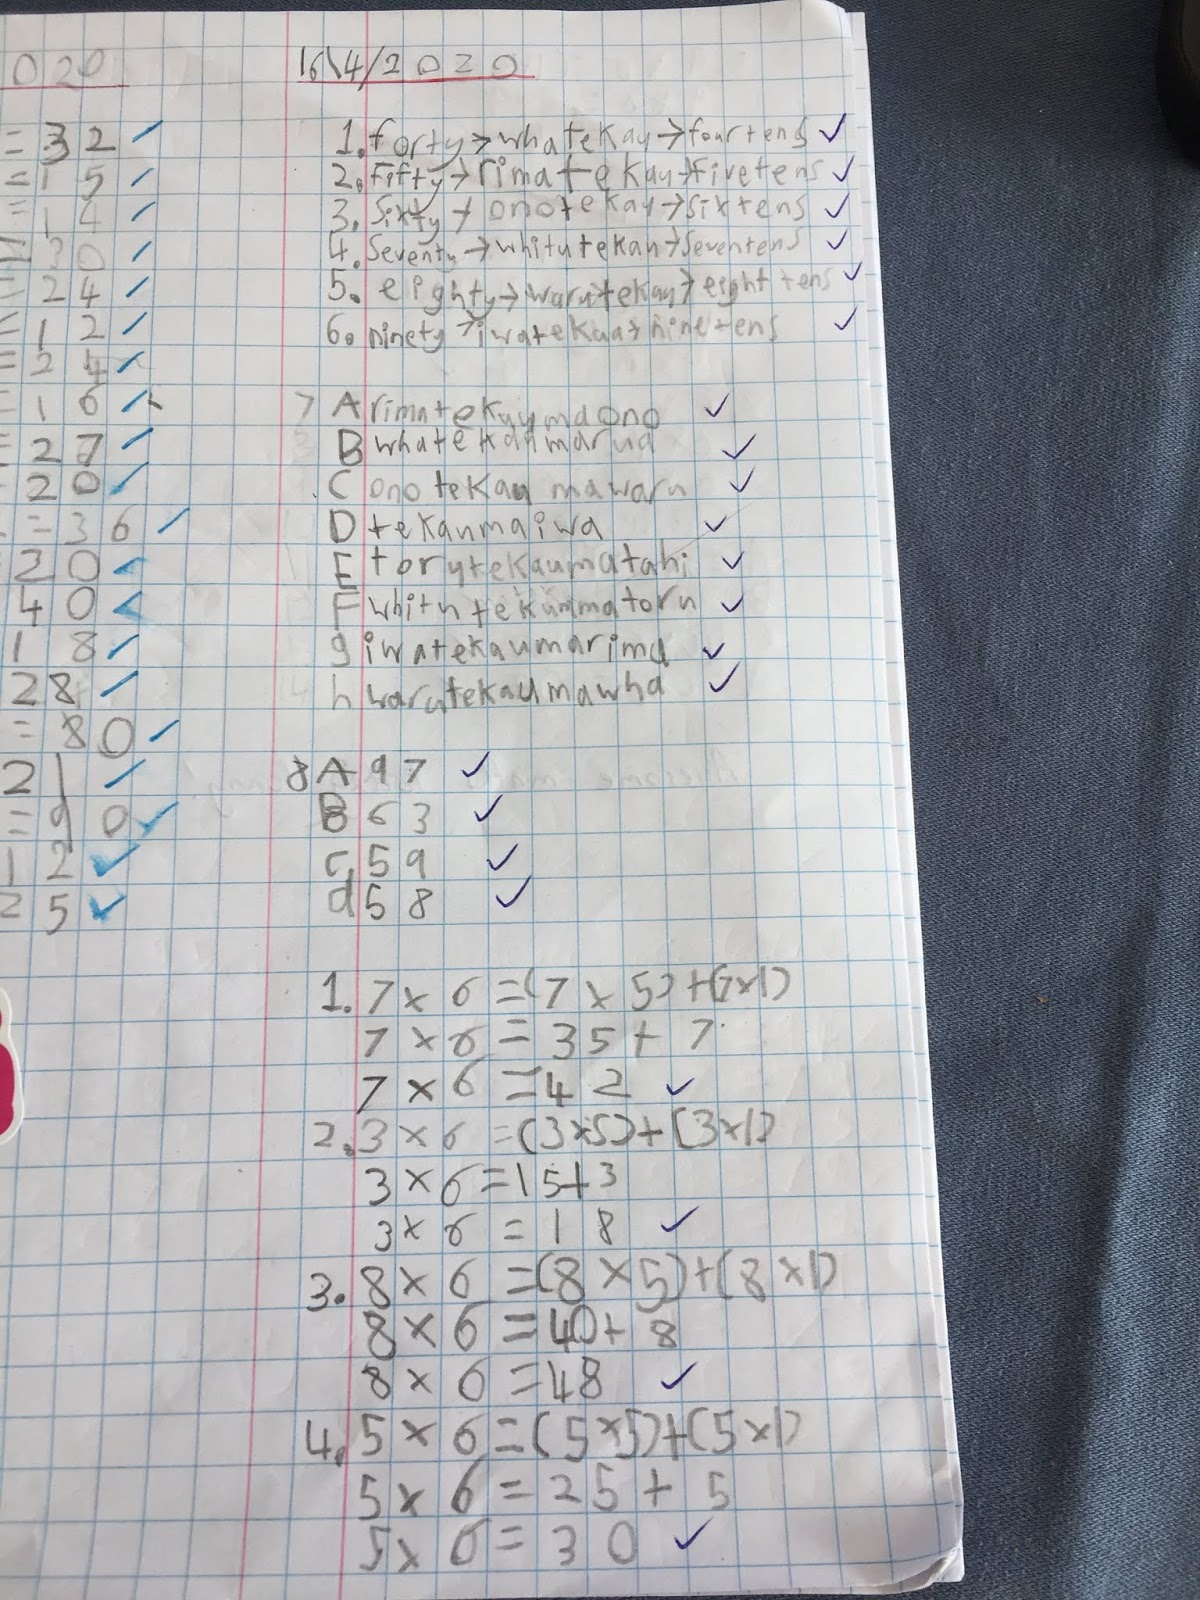 020
= 32
= 15
= 14
= 30
= 24
= 12
= 24
= 16
= 27
20
= 36
20
40
18
28
= 80
21
= 90
12
25
16\4/2020
1. forty→whatekay→fourtens
2. Fifty→rimatekau→Fivetens
3. Sixty→onotekau→Sixtens
4. Seventy→whitutekau→Seventens
5. eighty→warutekau→eight tens
6. ninety→iwatekau→ninetens
7 A rimatekaumaono
B whatekaumarua
C onotekau mawaru
D tekaumaiwa
E torutekaumatahi
F whitutekaumatoru
g iwatekaumarima
h warutekaumawha
8 A 97
B 63
C 59
d 58
1. 7 × 6 = (7 × 5) + (7×1)
7 × 6 = 35 + 7
7 × 6 = 42
2. 3 × 6 = (3×5) + (3×1)
3 × 6 = 15+3
3 × 6 = 18
3. 8 × 6 = (8 × 5) + (8 × 1)
8 × 6 = 40 + 8
8 × 6 = 48
4. 5 × 6 = (5×5) + (5×1)
5 × 6 = 25 + 5
5 × 6 = 30